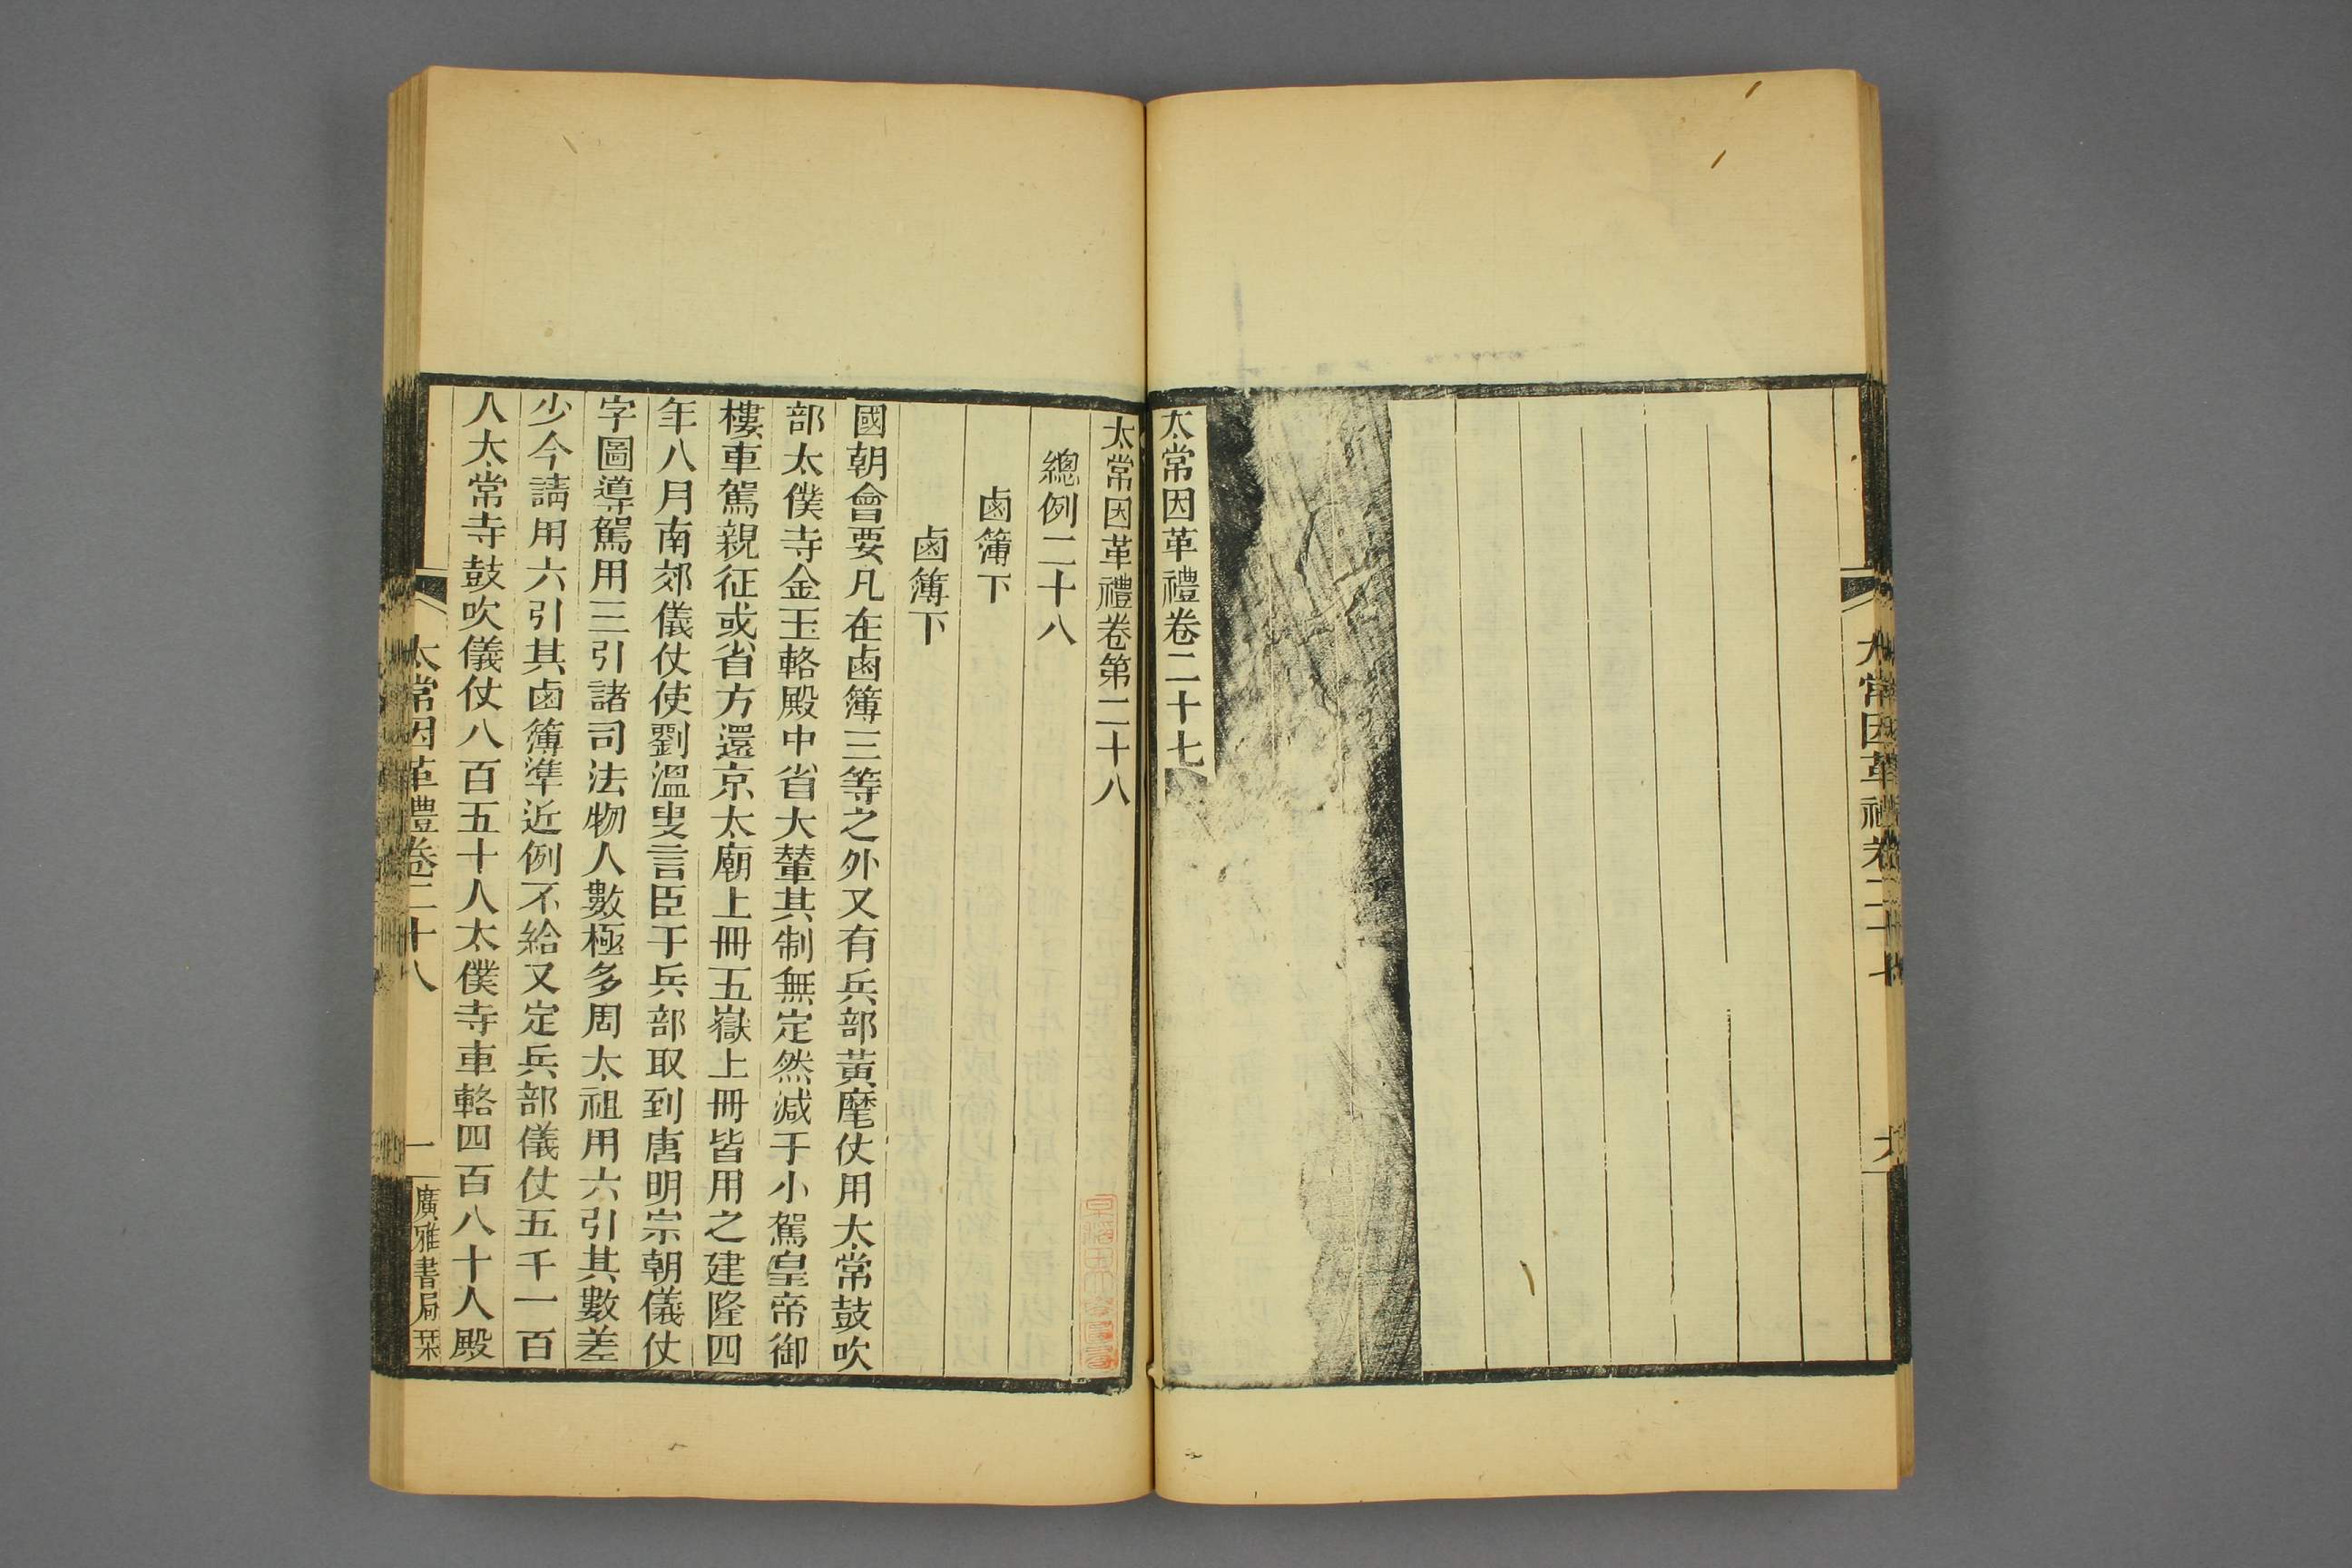 太常因革禮卷二十七
太常因革禮卷二十七
太常因革禮卷第二十八
總例二十八
鹵簿下
鹵簿下
國朝會要凡在鹵簿三等之外又有兵部黃麾仗用太常鼓吹
部太僕寺金玉輅殿中省大輦其制無定然減于小駕皇帝御
樓車駕親征或省方還京太廟上冊五嶽上冊皆用之建隆四
年八月南郊儀仗使劉溫叟言臣于兵部取到唐明宗朝儀仗
字圖導駕用三引諸司法物人數極多周太祖用六引其數差
少今請用六引其鹵簿準近例不給又定兵部儀仗五千一百
人太常寺鼓吹儀仗八百五十人太僕寺車輅四百八十人殿
太常因革禮卷二十八
一
廣雅書局栞